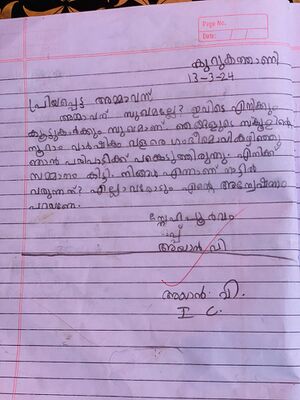 Page No.
Date: / /
കുറുകത്താണി
13-3-24
പ്രിയപ്പെട്ട അമ്മാവന്
അമ്മാവന് സുഖമല്ലേ? ഇവിടെ എനിക്കും
കൂട്ടുകാർക്കും സുഖമാണ്. ഞങ്ങളുടെ സ്കൂളിന്റെ
നൂറാം വാർഷികം വളരെ ഗംഭീരമായി കഴിഞ്ഞു
ഞാൻ പരിപാടിക്ക് പങ്കെടുത്തിരുന്നു. എനിക്ക്
സമ്മാനം കിട്ടി. നിങ്ങൾ എന്നാണ് നാട്ടിൽ
വരുന്നത്? എല്ലാവരോടും എന്റെ അന്വേഷണം
പറയണേ.
സ്നേഹപൂർവം
ഒപ്പ്
അയാൻ വി
അയാൻ. വി.
I C.